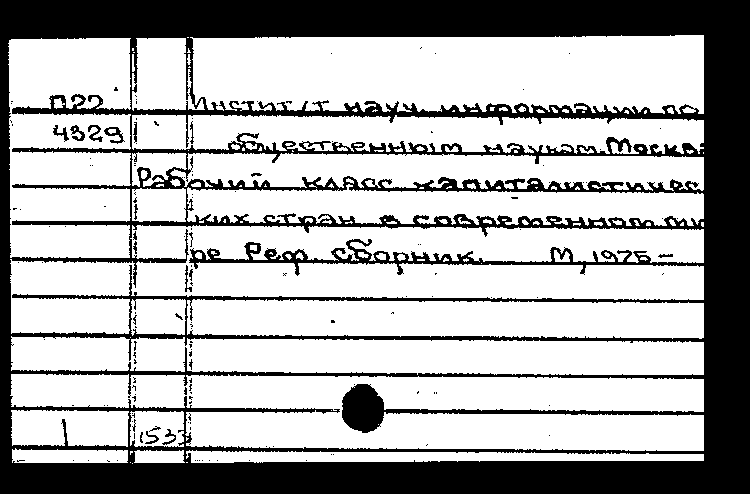 П22 Институт науч. информации по
4329 общественным наукам. Москва
Рабочий класс капиталистичес
ких стран в современном ми
ре Реф. сборник. М, 1975-
1533